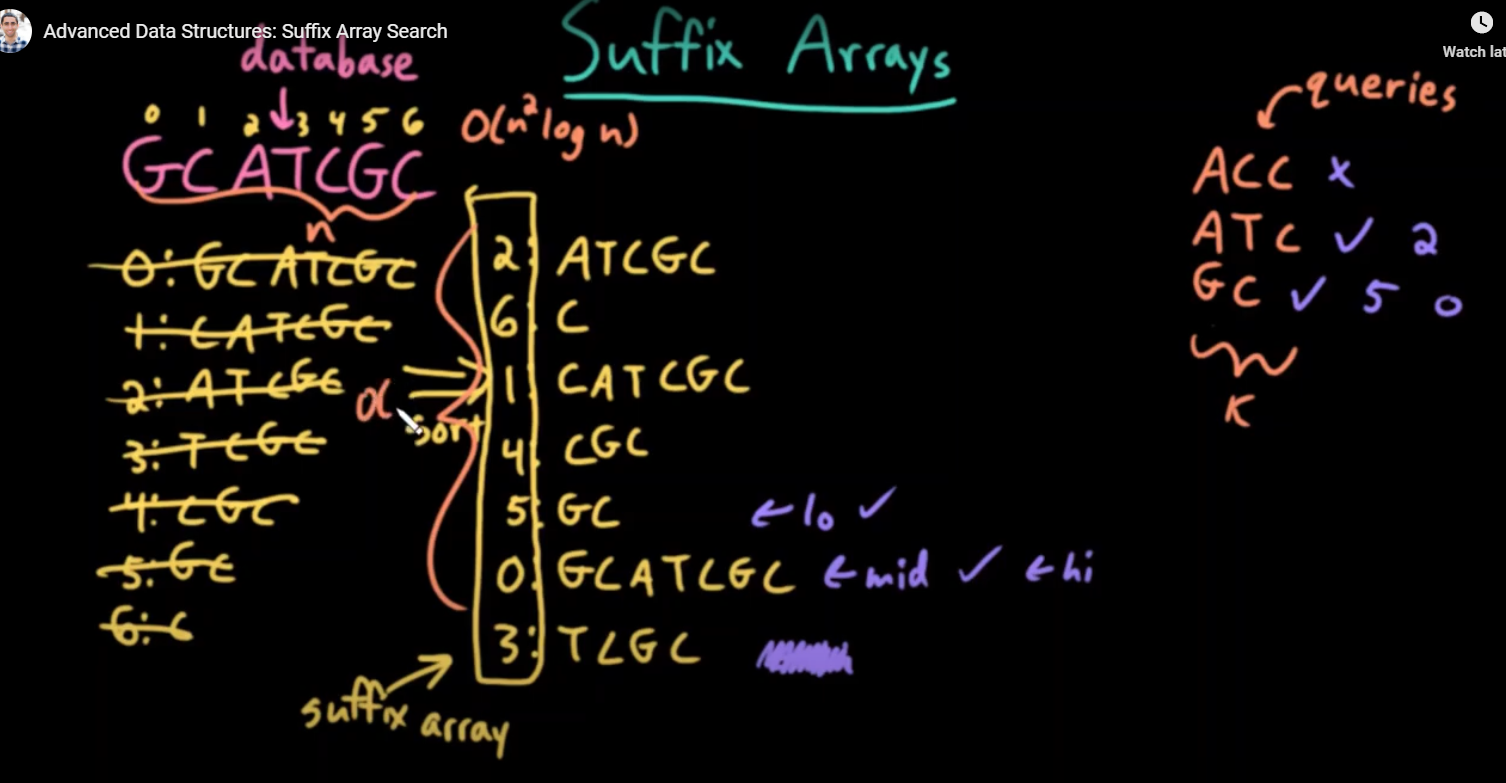 Advanced Data Structures: Suffix Array Search
Watch lat
Suffix Arrays
database
0 1 2 3 4 5 6
GCATCGC
n
O(n² log n)
0: GCATCGC
1: CATCGC
2: ATCGC
3: TCGC
4: CGC
5: GC
6: C
α
sort
2: ATCGC
6: C
1: CATCGC
4: CGC
5: GC ← lo ✓
0: GCATCGC ← mid ✓ ← hi
3: TCGC
suffix array
queries
ACC x
ATC ✓ 2
GC ✓ 5 0
K